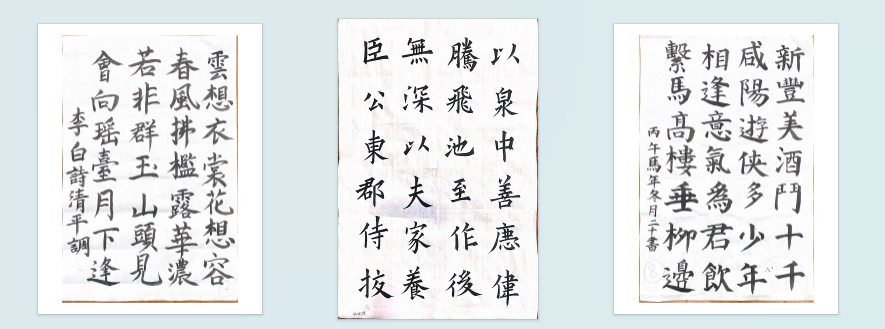 雲想衣裳花想容
春風拂檻露華濃
若非群玉山頭見
會向瑶臺月下逢
李白詩清平調
以泉中善應偉
騰飛池至作後
無深以夫家養
臣公東郡侍拔
新豐美酒鬥十千
咸陽遊俠多少年
相逢意氣為君飲
繫馬高樓垂柳邊
丙午馬年冬月二十書